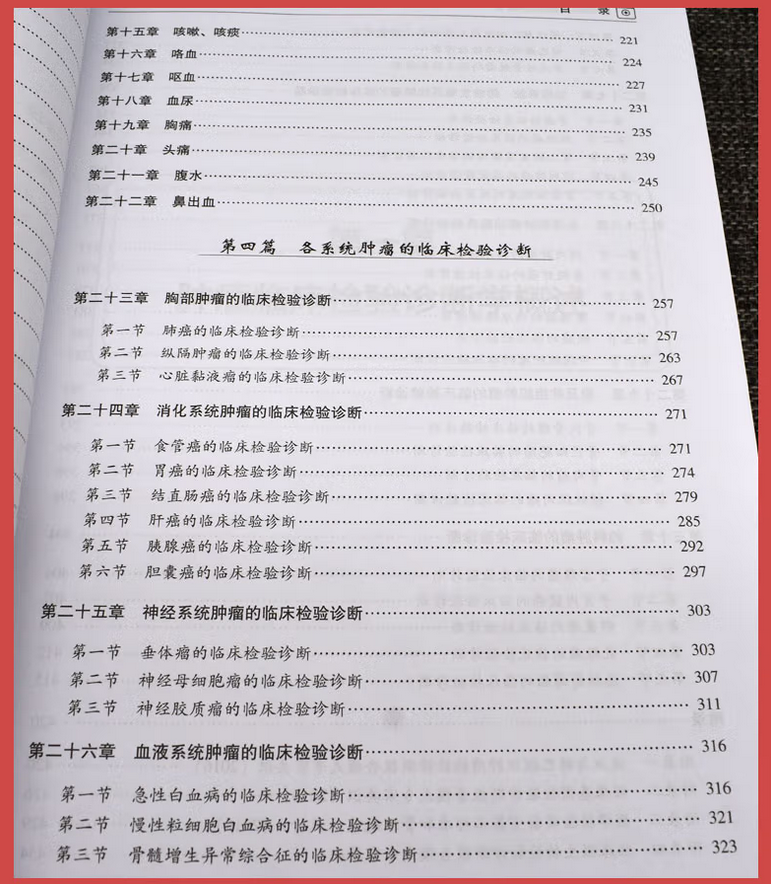 目 录
第十五章 咳嗽、咳痰 221
第十六章 咯血 224
第十七章 呕血 227
第十八章 血尿 231
第十九章 胸痛 235
第二十章 头痛 239
第二十一章 腹水 245
第二十二章 鼻出血 250
第四篇 各系统肿瘤的临床检验诊断
第二十三章 胸部肿瘤的临床检验诊断 257
第一节 肺癌的临床检验诊断 257
第二节 纵隔肿瘤的临床检验诊断 263
第三节 心脏黏液瘤的临床检验诊断 267
第二十四章 消化系统肿瘤的临床检验诊断 271
第一节 食管癌的临床检验诊断 271
第二节 胃癌的临床检验诊断 274
第三节 结直肠癌的临床检验诊断 279
第四节 肝癌的临床检验诊断 285
第五节 胰腺癌的临床检验诊断 292
第六节 胆囊癌的临床检验诊断 297
第二十五章 神经系统肿瘤的临床检验诊断 303
第一节 垂体瘤的临床检验诊断 303
第二节 神经母细胞瘤的临床检验诊断 307
第三节 神经胶质瘤的临床检验诊断 311
第二十六章 血液系统肿瘤的临床检验诊断 316
第一节 急性白血病的临床检验诊断 316
第二节 慢性粒细胞白血病的临床检验诊断 321
第三节 骨髓增生异常综合征的临床检验诊断 323